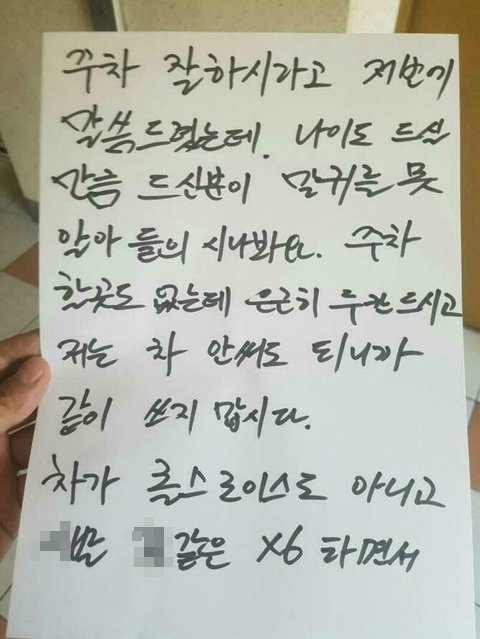 주차 잘하시라고 저번에
말씀드렸는데. 나이도 드실
만큼 드신분이 말귀를 못
알아 들의 시나봐요. 주차
할곳도 없는데 은근히 두칸드시고
저는 차 안써도 되니까
같이 쓰지 맙시다.
차가 롤스로이스도 아니고
같은 X6 타면서